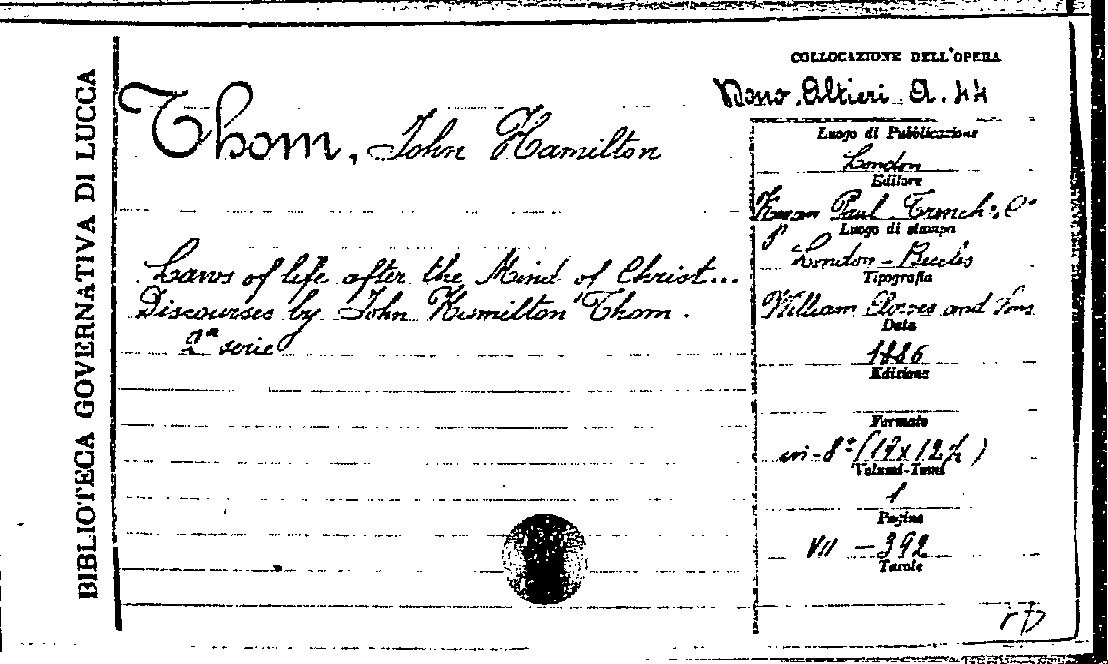 BIBLIOTECA GOVERNATIVA DI LUCCA
Thom, John Hamilton
Laws of life after the Mind of Christ...
Discourses by John Hamilton Thom.
2ª serie
COLLOCAZIONE DELL'OPERA
Dono Altieri A. 44
Luogo di Pubblicazione
London
Editore
Kegan Paul Trench & Cº
Luogo di stampa
London - Beccles
Tipografia
William Clowes and Sons
Data
1886
Edizione
Formato
in-8º (17x12½)
Volumi-Tomi
1
Pagine
VII - 392
Tavole